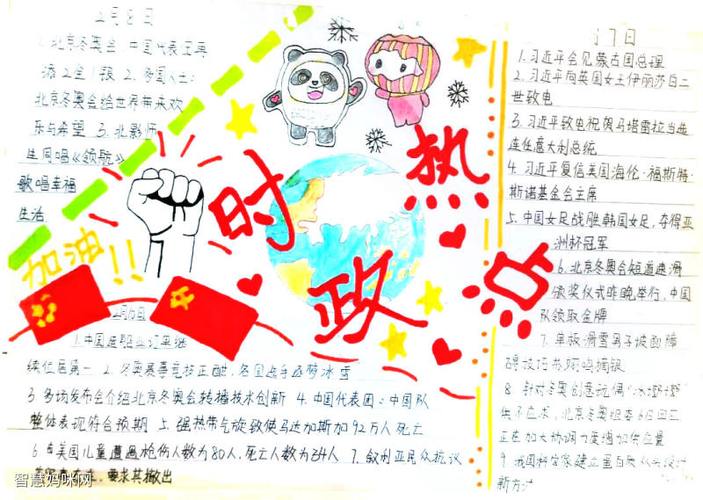 2月8日
1.北京冬奥会 中国代表王冉
2.多国人士:
北京冬奥会给世界带来欢
乐与希望 3.北影师
生同唱《领航》
歌唱幸福
生活
加油!!
时政热点
续位居第一 2.冬奥赛事竞技正酣,各国选手逐梦冰雪
3.多场发布会介绍北京冬奥会转播技术创新 4.中国代表团:中国队
整体表现符合预期 5.强热带气旋致使马达加斯加92万人死亡
6.美国儿童遭遇枪伤人数为80人,死亡人数为 7.叙利亚民众抗议
要求其撤出
7日
1.习近平会见蒙古国总理
2.习近平向英国女王伊丽莎白二
世致电
3.习近平致电祝贺马塔雷拉当选
连任意大利总统
4.习近平复信英国海伦·福斯特·
斯诺基金会主席
5.中国女足战胜韩国女足,夺得亚
洲杯冠军
6.北京冬奥会短道速滑
颁奖仪式昨晚举行,中国
队领取金牌
7.单板滑雪男子坡面障
碍技巧苏翊鸣摘银
8.针对冬奥创意玩偶“冰墩墩”
供不应求,北京冬奥组委6日回应
正在加大协调力度增加供应量
9.我国科学家建立蛋白质从头设计
新方法
智慧妈咪网